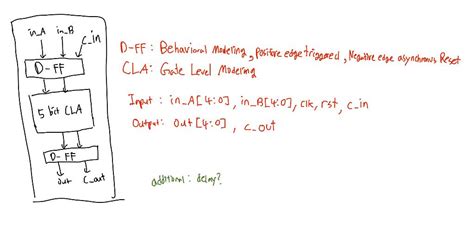 in_A in_B c_in
D-FF
5 bit CLA
D-FF
out c_out
D-FF: Behavioral Modeling, Positive edge triggered, Negative edge asynchronous Reset
CLA: Gate Level Modeling
Input: in_A[4:0], in_B[4:0], clk, rst, c_in
Output: Out[4:0], c_out
additional: delay?